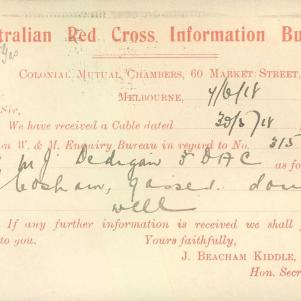 stralian Red Cross Information Bu
Colonial Mutual Chambers, 60 Market Street,
Melbourne, 4/6/18
Sir,
We have received a Cable dated 30/5/18
m W. & M. Enquiry Bureau in regard to No. 315
M. J. Dedigan 3 DAC as fo
Cosham, gassed, doin
well
If any further information is received we shall
to you. Yours faithfully,
J. BEACHAM KIDDLE,
Hon. Secr